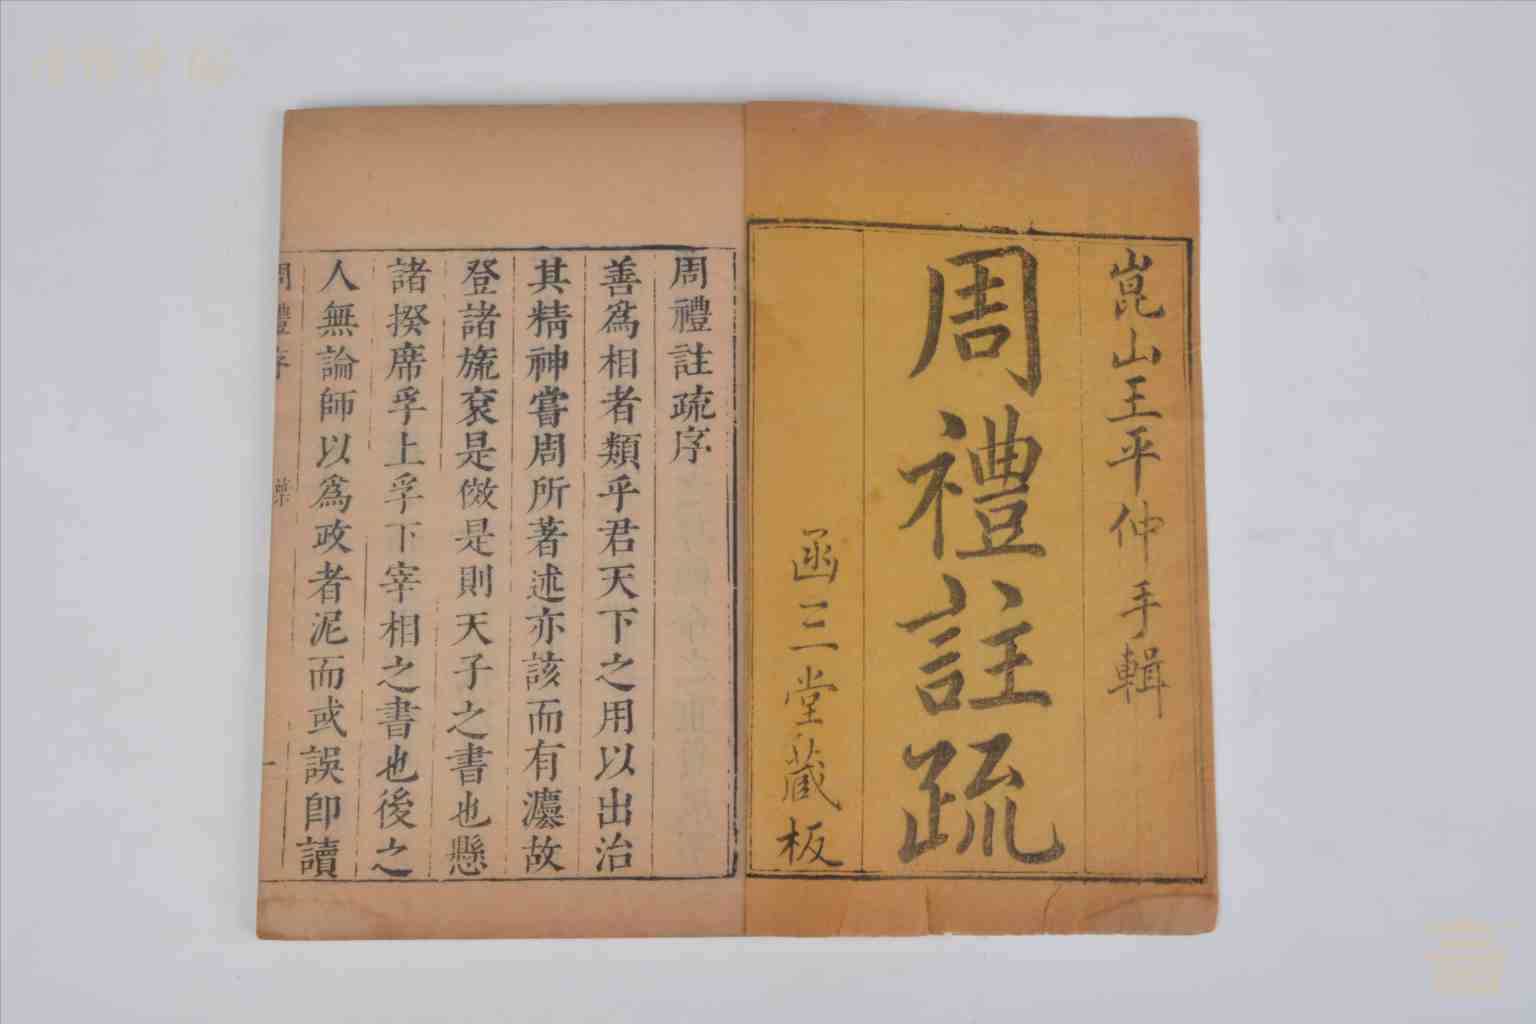 崑山王平仲手輯
周禮註疏
函三堂藏板
周禮註疏序
善爲相者類乎君天下之用以出治
其精神嘗周所著述亦該而有灋故
登諸旒袞是儆是則天子之書也懸
諸揆席孚上孚下宰相之書也後之
人無論師以爲政者泥而或誤卽讀
周禮序